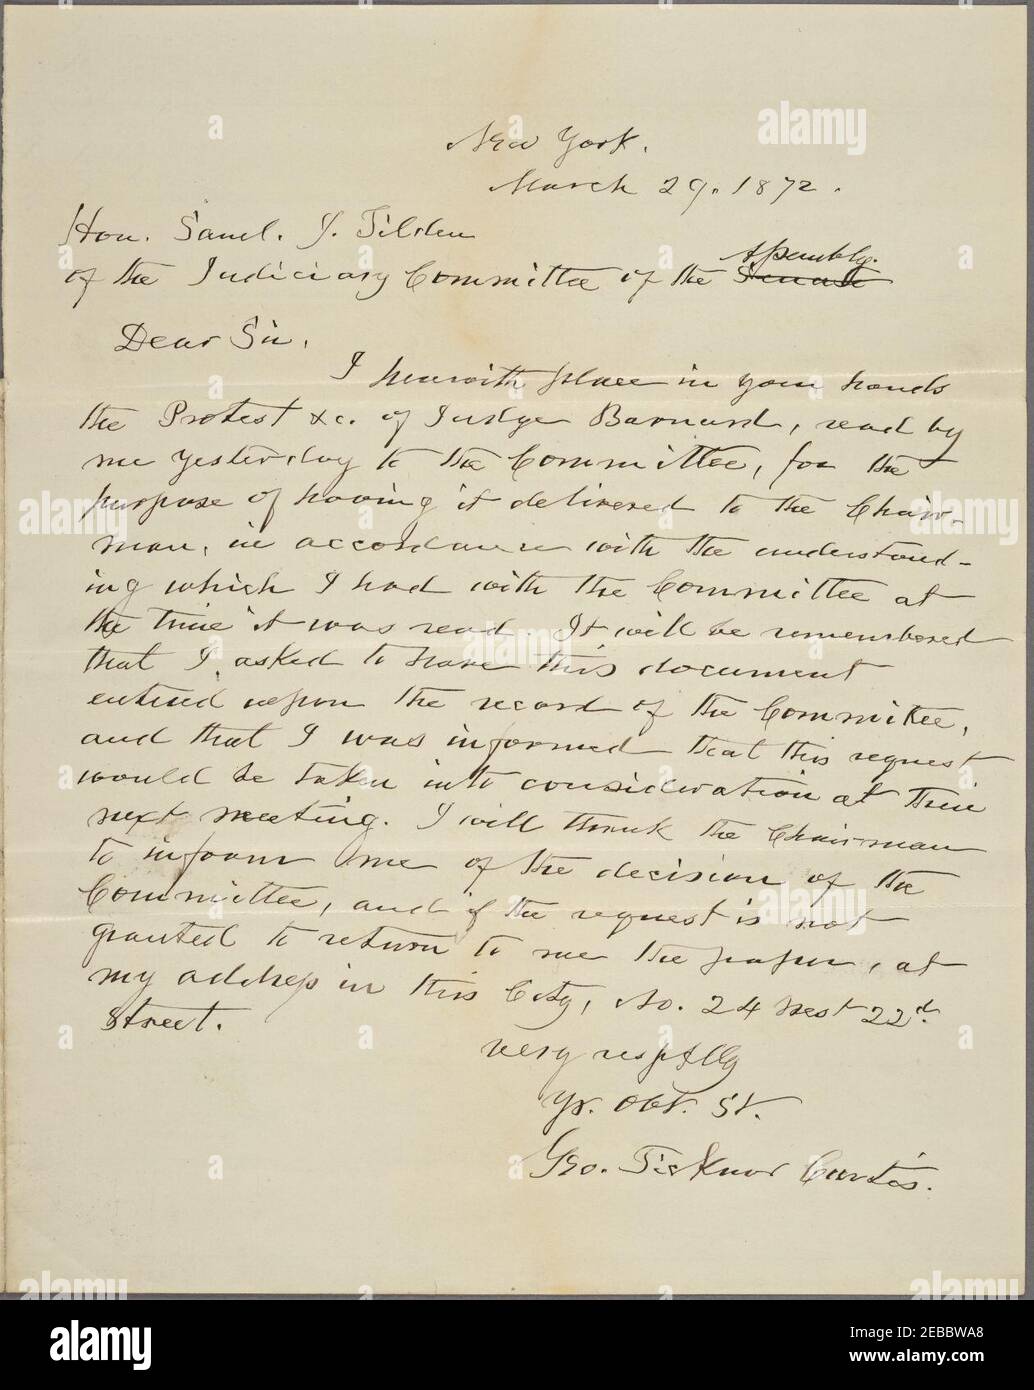 New York.
March 29. 1872.
Hon. Saml. J. Tilden
Assembly.
of the Judiciary Committee of the Senate
Dear Sir,
I herewith place in your hands
the Protest &c. of Judge Barnard, read by
me yesterday to the Committee, for the
purpose of having it delivered to the Chair-
man, in accordance with the understand-
ing which I had with the Committee at
the time it was read. It will be remembered
that I asked to have this document
entered upon the record of the Committee,
and that I was informed that this request
would be taken into consideration at their
next meeting. I will thank the Chairman
to inform me of the decision of the
Committee, and if the request is not
granted to return to me the paper, at
my address in this City, No. 24 West 22d.
Street.
Very respflly
Yr. Obt. St.
Geo. Ticknor Curtis.
alamy
Image ID: 2EBBWA8
www.alamy.com